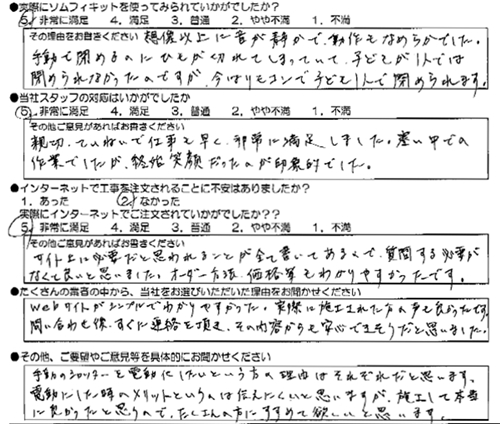 ●実際にソムフィキットを使ってみられていかがでしたか？
5. 非常に満足 4. 満足 3. 普通 2. やや不満 1. 不満
その理由をお書きください 想像以上に音が静かで、動作もなめらかでした。
手動で閉めるのにひもが切れてしまっていて、子どもが1人では
閉められなかったのですが、今はリモコンで子ども1人で閉められます。
●当社スタッフの対応はいかがでしたか
5. 非常に満足 4. 満足 3. 普通 2. やや不満 1. 不満
その他ご意見があればお書きください
親切、ていねいで仕事も早く、非常に満足しました。寒い中での
作業でしたが、終始笑顔だったのが印象的でした。
●インターネットで工事を注文されることに不安はありましたか？
1. あった 2. なかった
実際にインターネットでご注文されていかがでしたか？？
5. 非常に満足 4. 満足 3. 普通 2. やや不満 1. 不満
その他ご意見があればお書きください
サイト上に必要だと思われることが全て書いてあるくて、質問する必要が
なくて良いと思いました。オーダー方法、価格等もわかりやすかったです。
●たくさんの業者の中から、当社をお選びいただいた理由をお聞かせください
Webサイトがシンプルでわかりやすかった。実際に施工された方の声も良かったです。
問い合わせ後、すぐに連絡を頂き、その内容からも安心できそうだと思いました。
●その他、ご要望やご意見等を具体的にお聞かせください
手動のシャッターを電動にしたいという方の理由はそれぞれだと思います。
電動にした時のメリットというのは伝えにくいと思いますが、施工して本当
に良かったと思うので、たくさんの方にすすめて欲しいと思います。